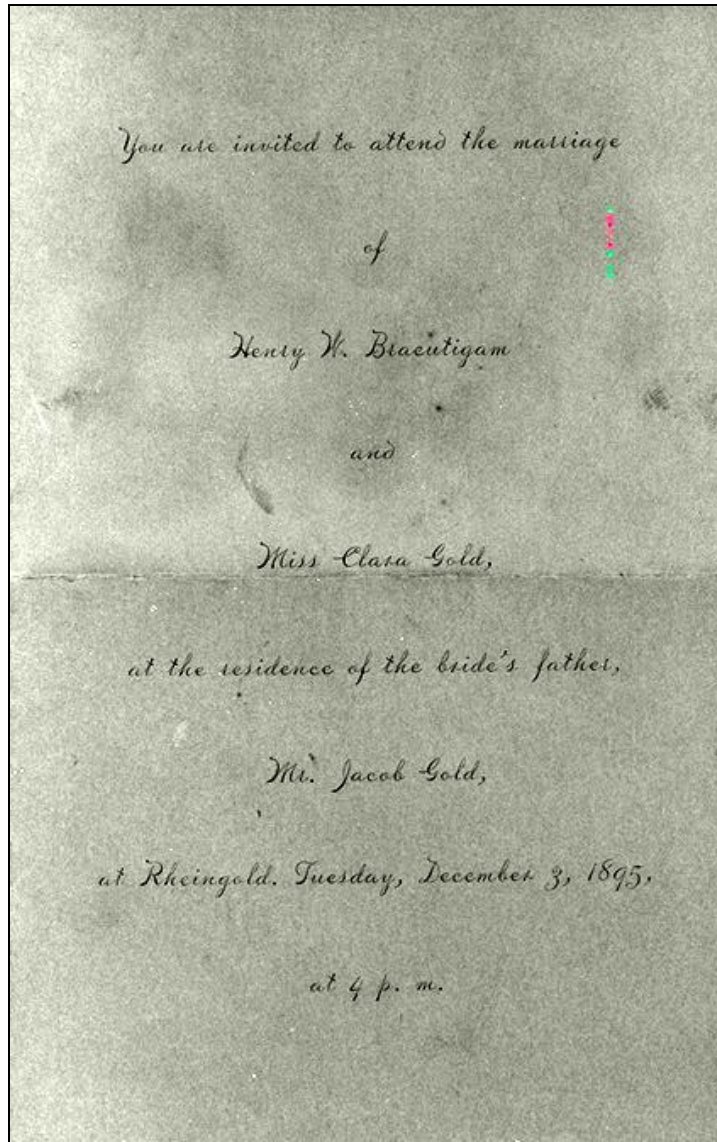 You are invited to attend the marriage
of
Henry W. Braeutigam
and
Miss Clara Gold,
at the residence of the bride's father,
Mr. Jacob Gold,
at Rheingold. Tuesday, December 3, 1895,
at 4 p. m.